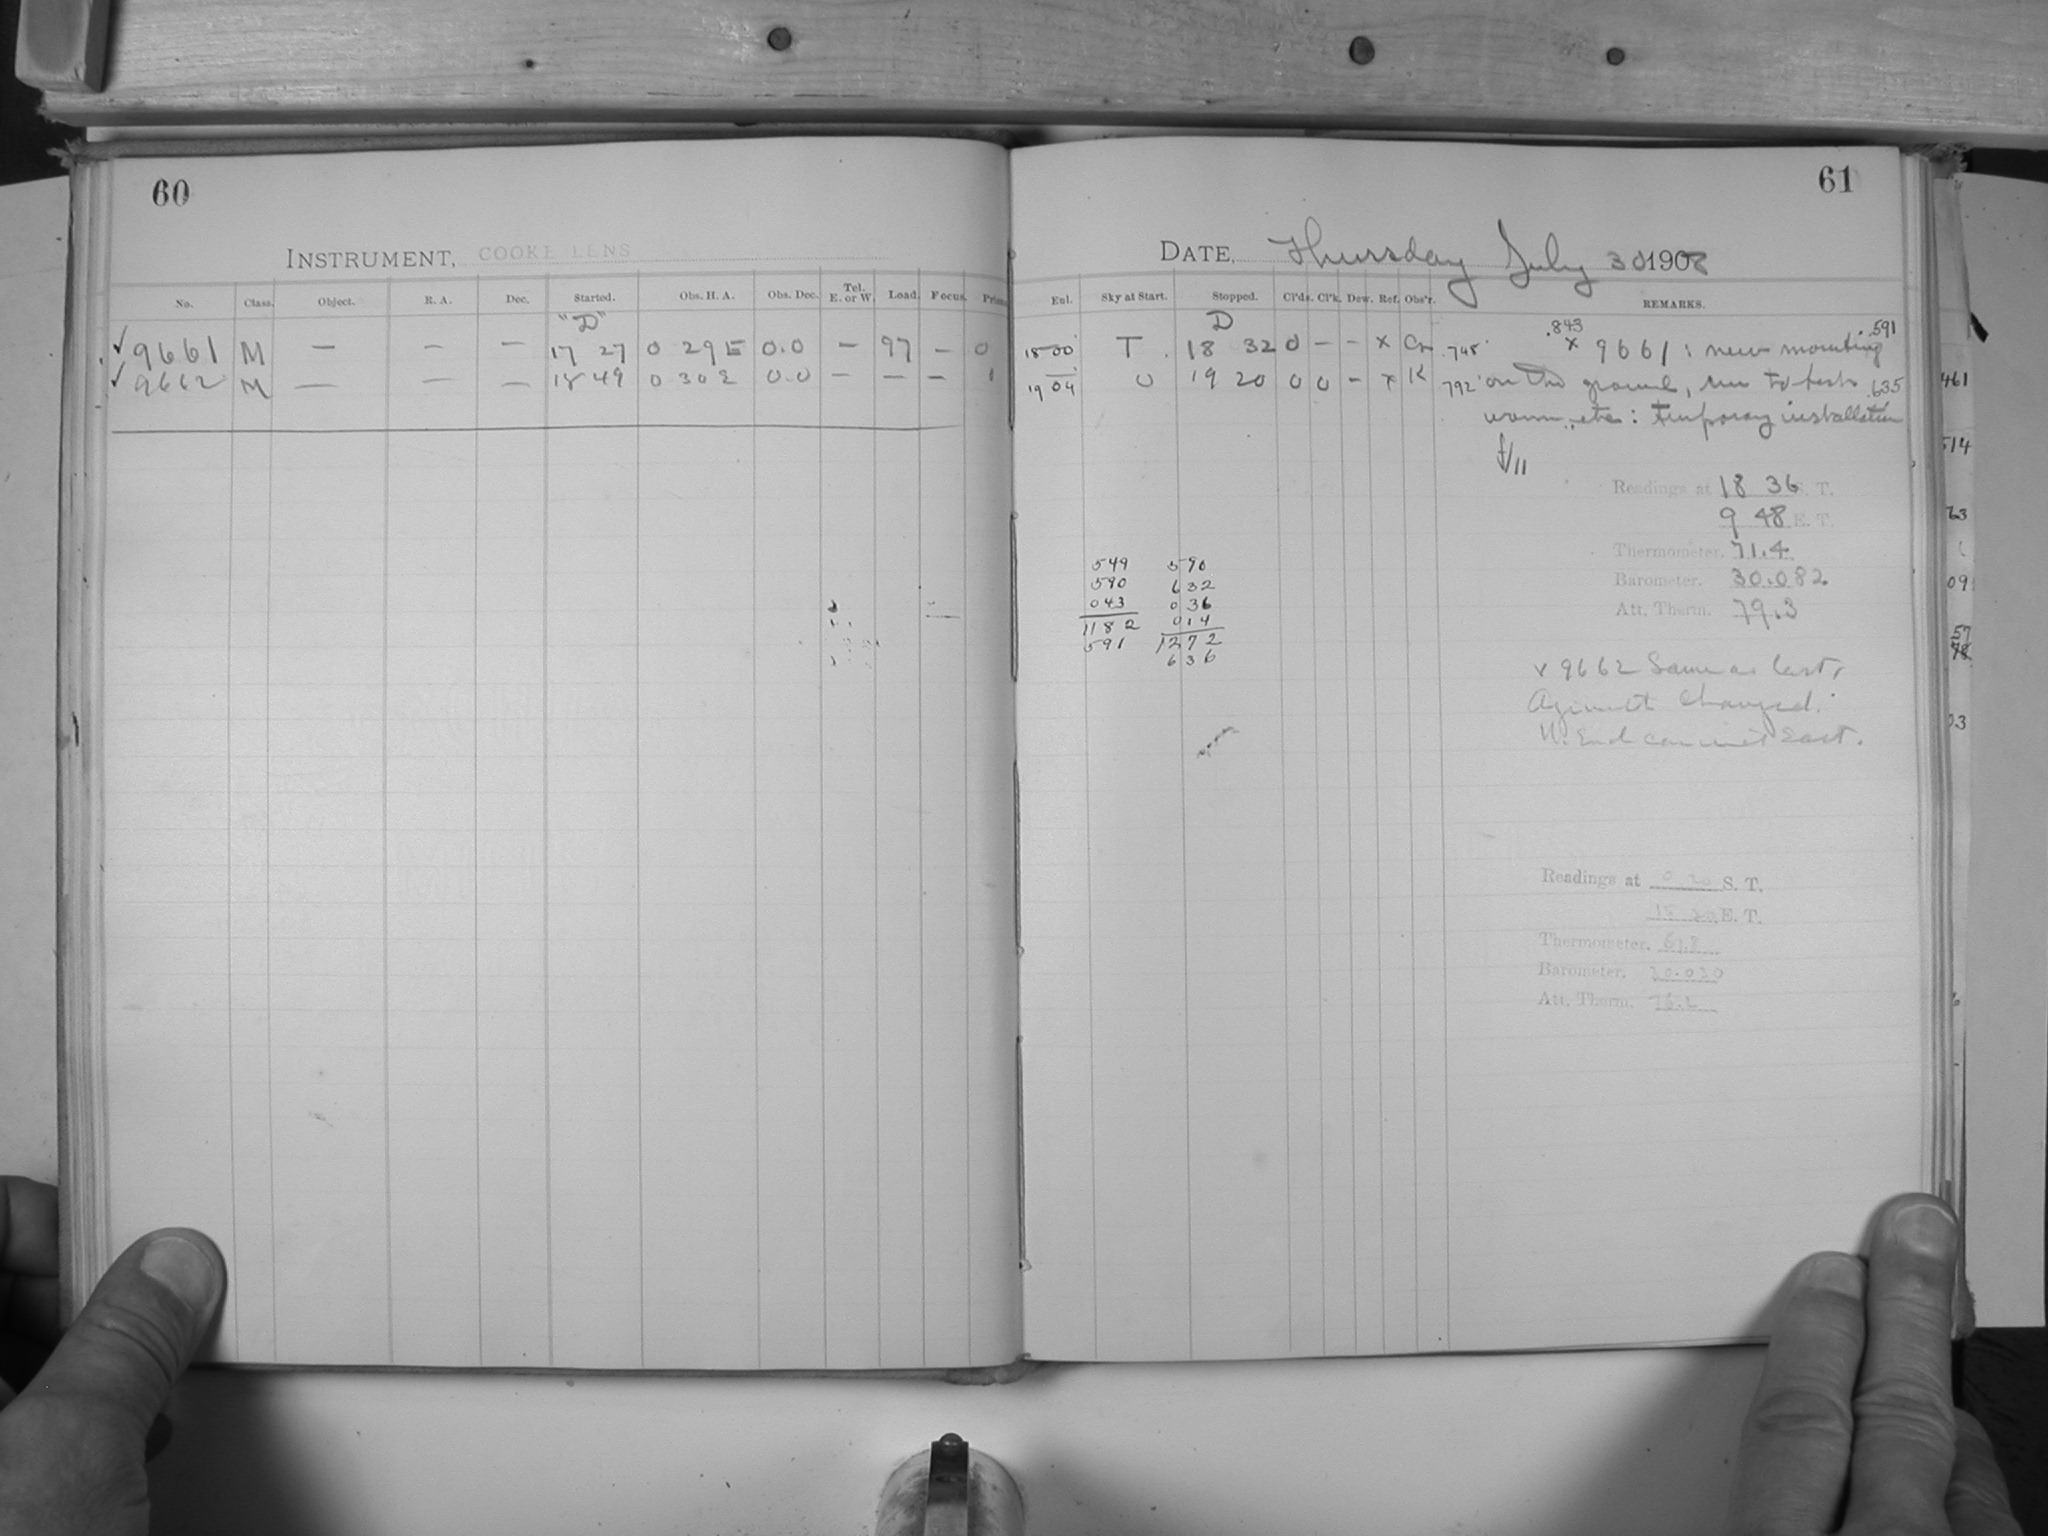 60
INSTRUMENT, COOKE LENS
No. Class. Object. R. A. Dec. Started. Obs. H. A. Obs. Dec. Tel. E. or W. Load. Focus.
"D"
✓9661 M — — — 17 27 0 29 E 0.0 — 97 — 0
✓9662 M — — — 18 49 0 30 2 0.0 — — — 1
61
DATE, Thursday July 30 1908
Eul. Sky at Start. Stopped. Cl'ds. Cl'k. Dew. Ref. Obs'r. REMARKS.
D
.843 .591
18 00 T. 18 32 0 — — x .748 x 9661: new mounting
19 04 0 19 20 0 0 — x K 792 on the ground, run to test .635
worm, etc: Temporary installation
f/11
Readings at 18 36 S. T.
9 48 E. T.
Thermometer. 71.4
Barometer. 30.082
Att. Therm. 79.3
549 590
590 632
043 036
1182 014
591 1272
636
x 9662 Same as last,
Azimuth changed.
End East.
Readings at 0 20 S. T.
E. T.
Thermometer.
Barometer. 30.030
Att. Therm.
461
514
63
09
57
78
03